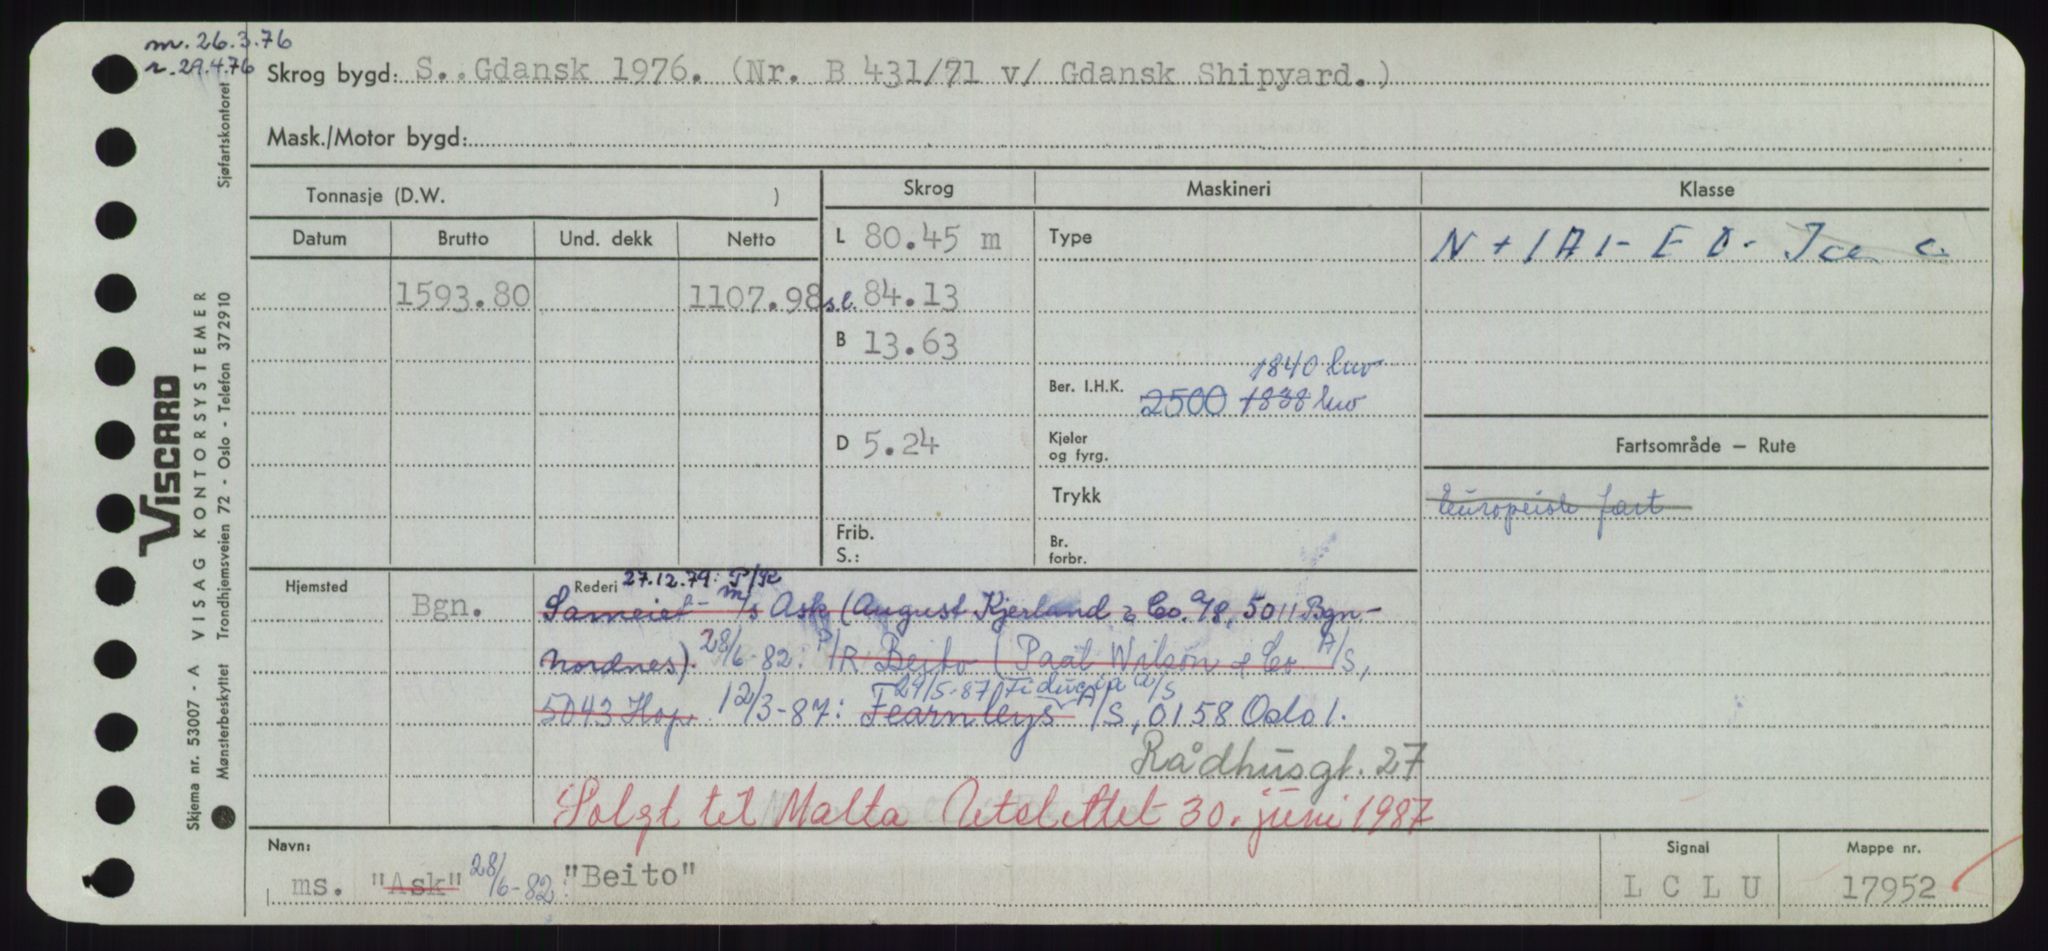 m. 26.3.76
r. 29.4.76
Skrog bygd: S. Gdansk 1976. (Nr. B 431/71 v/ Gdansk Shipyard.)
Mask./Motor bygd:
Tonnasje (D.W. )
Skrog
Maskineri
Klasse
Datum
Brutto
Und. dekk
Netto
L 80.45 m
Type
N + 1A1 - E0 - Ice C
1593.80
1107.98
s.l. 84.13
B 13.63
1840 kw
Ber. I.H.K. 2500 1838 kw
D 5.24
Kjeler
og fyrg.
Fartsområde – Rute
Trykk
Europeisk fart
Frib.
S.:
Br.
forbr.
Hjemsted
Rederi 27.12.79: P/R
Bgn.
Sameiet m/s Ask (August Kjerland & Co. A/S, 5011 Bgn-
Nordnes). 28/6-82: P/R Beito (Paal Wilson & Co A/S,
29/5-87 Fiducia A/S
5043 Hop 12/3-87: Fearnleys A/S, 0158 Oslo 1.
Rådhusgt. 27
Solgt til Malta Utslettet 30. juni 1987
Navn:
Signal
Mappe nr.
ms. "Ask" 28/6-82: "Beito"
L C L U
17952
Sjøfartskontoret
VISCARD
Skjema nr. 53007 - A VISAG KONTORSYSTEMER
Mønsterbeskyttet Trondhjemsveien 72 - Oslo - Telefon 372910